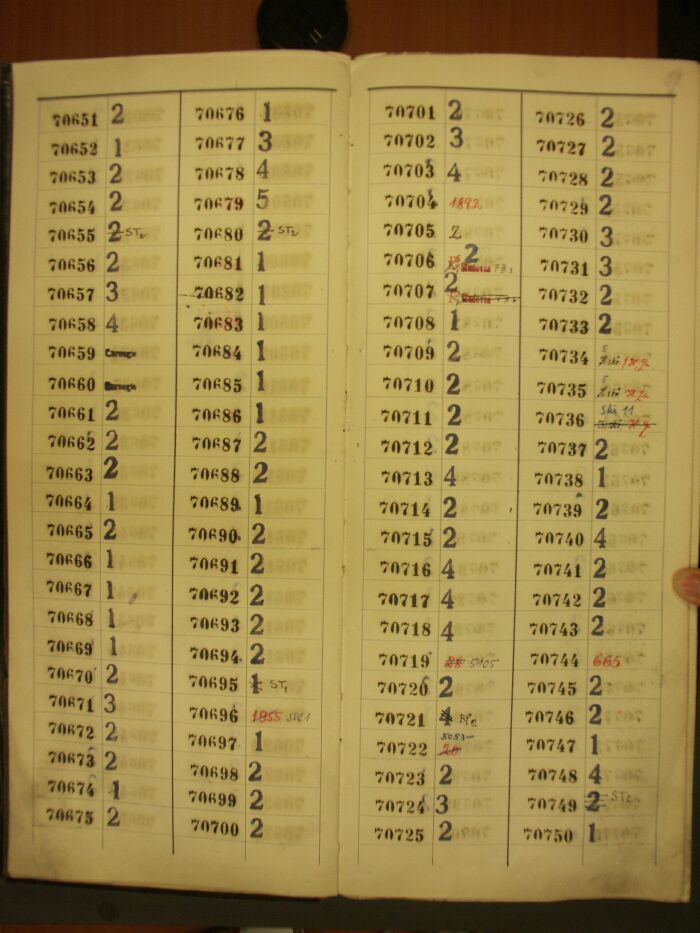 70651 2
70652 1
70653 2
70654 2
70655 2 ST2
70656 2
70657 3
70658 4
70659 Carnegie
70660 Carnegie
70661 2
70662 2
70663 2
70664 1
70665 2
70666 1
70667 1
70668 1
70669 1
70670 2
70671 3
70672 2
70673 2
70674 1
70675 2
70676 1
70677 3
70678 4
70679 5
70680 2 ST2
70681 1
70682 1
70683 1
70684 1
70685 1
70686 1
70687 2
70688 2
70689 1
70690 2
70691 2
70692 2
70693 2
70694 2
70695 1 ST1
70696 1955 5001
70697 1
70698 2
70699 2
70700 2
70701 2
70702 3
70703 4
70704 1892
70705 2
70706 2
70707 2
70708 1
70709 2
70710 2
70711 2
70712 2
70713 4
70714 2
70715 2
70716 4
70717 4
70718 4
70719 28 5105
70720 2
70721 4
70722 20
70723 2
70724 3
70725 2
70726 2
70727 2
70728 2
70729 2
70730 3
70731 3
70732 2
70733 2
70734 5
70735 5
70736 Ski 11
70737 2
70738 1
70739 2
70740 4
70741 2
70742 2
70743 2
70744 665
70745 2
70746 2
70747 1
70748 4
70749 2 ST2
70750 1